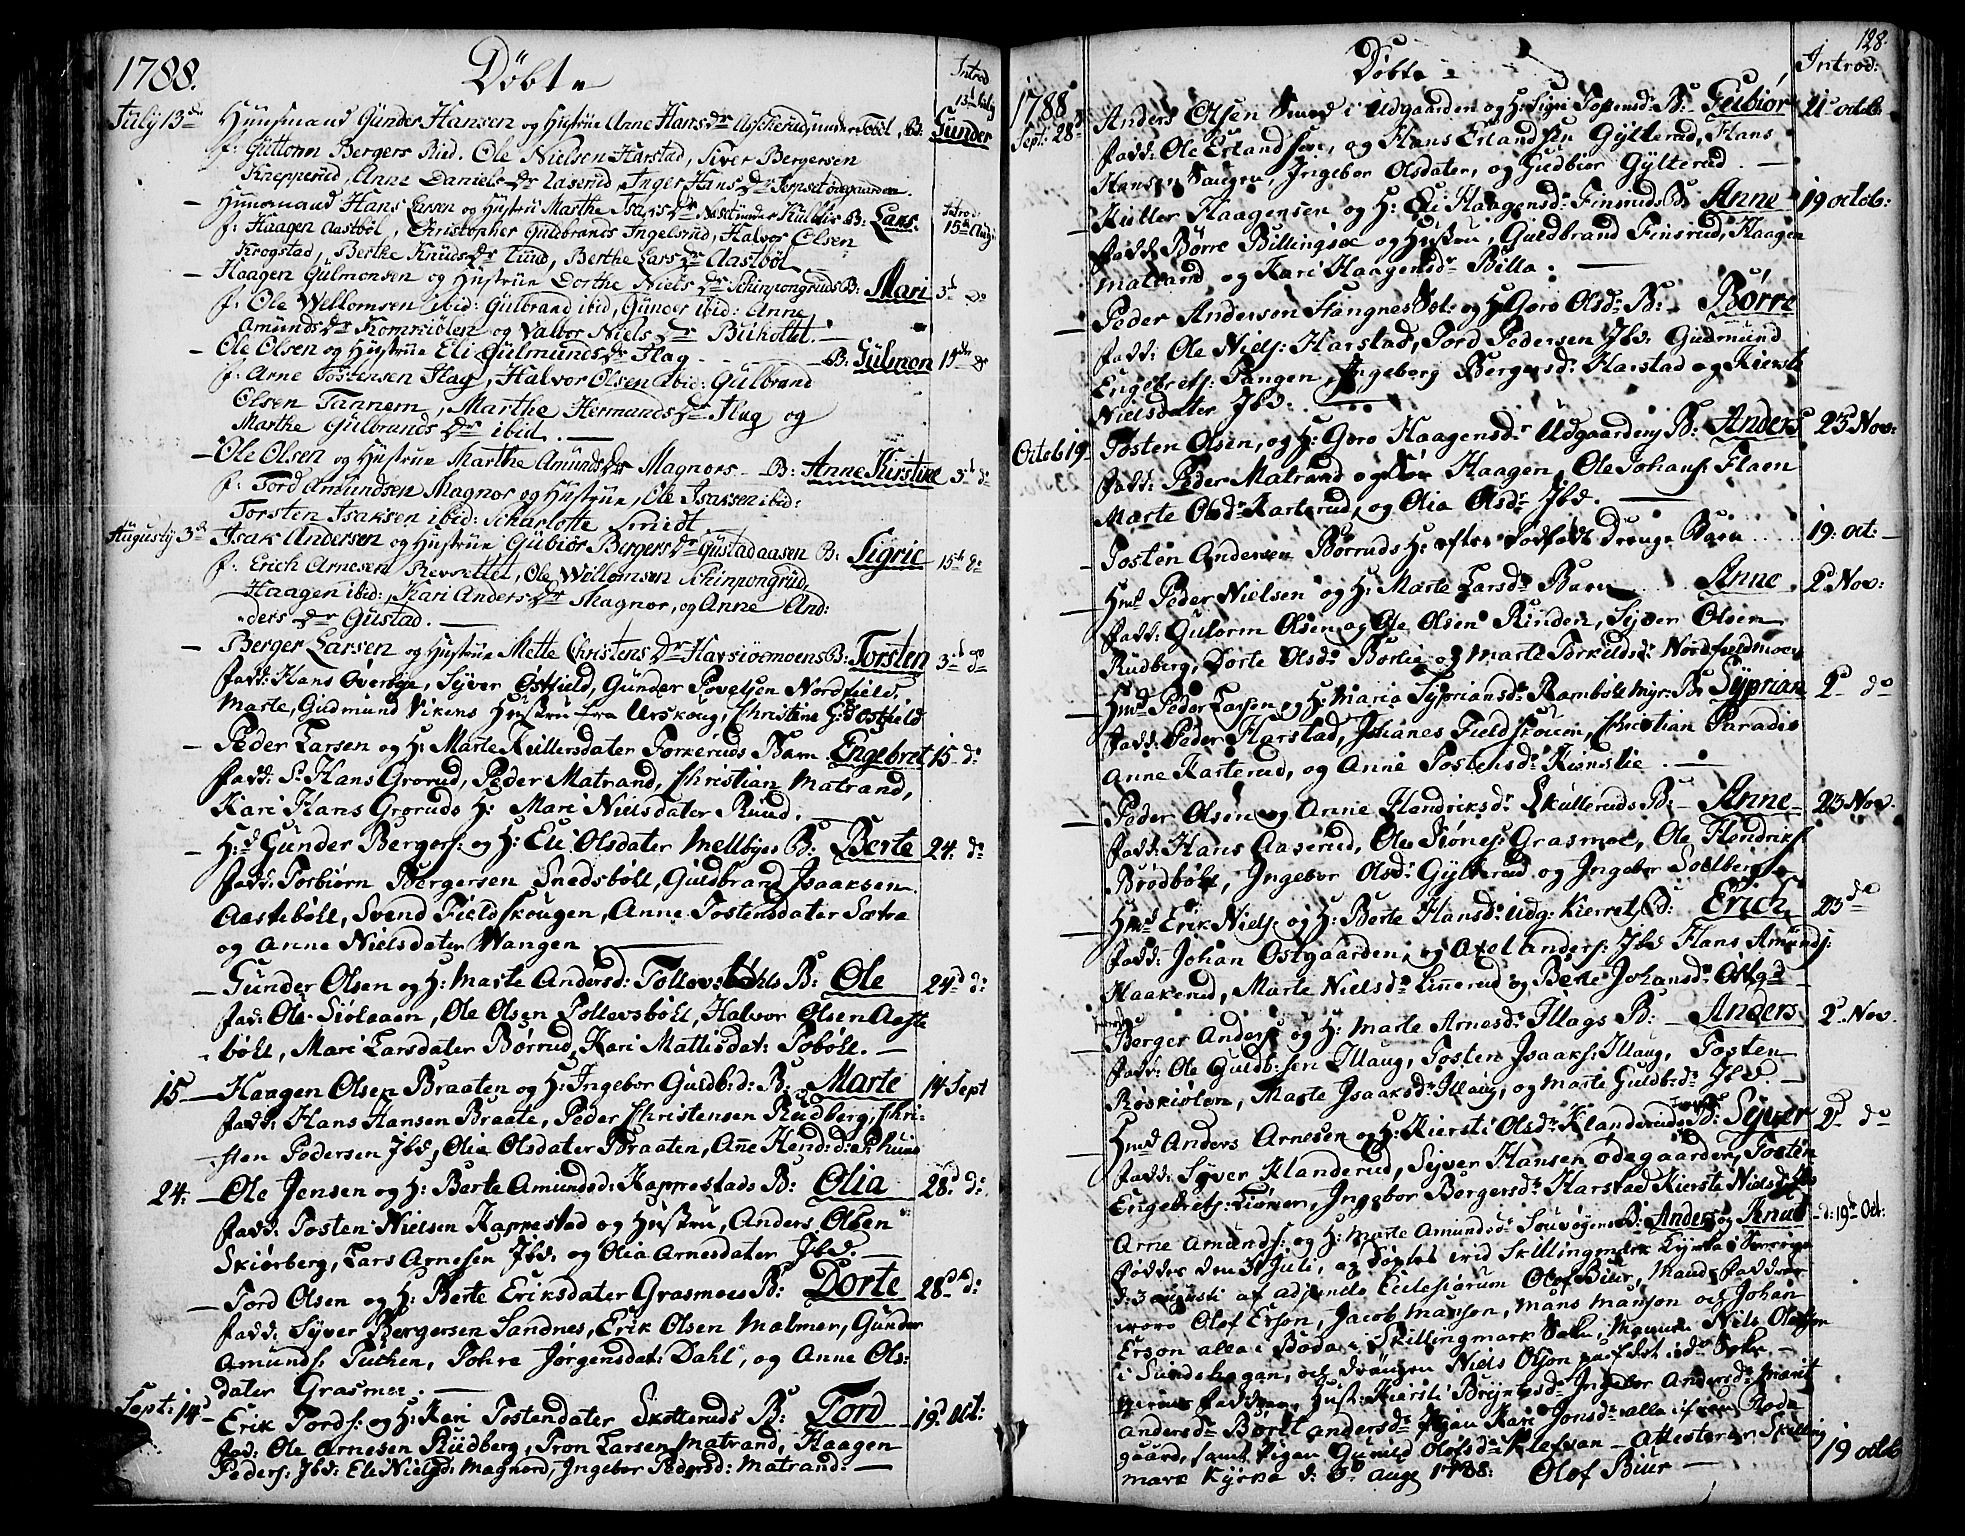 1788. Döbte Introd
July 13de Huusmand Gunder Hansen og Hustrue Anne Hansdr Agskerud under Tobøl B: Gunder 13d July
f: Guttorm Bergers Rud. Ole Nielsen Harstad, Siver Bergersen
Knepperud, Anne Danielsdr Laserud, Inger Hansdr Tomset ödegaarden.
Huusmand Hans Larsen og Hustru Marthe Isaksdr Næset under Kulblie B: Lars. Introd: 15de Aug:
f: Haagen Aastböl, Christopher Guldbrands Ingelsrud, Halvor Olsen
Krogstad, Berthe Knudsdr Lund, Berthe Larsdr Aastböl
Haagen Gulmonsen og Hustrue Dorthe Nielsdr Schinpongruds B: Mari 3d do
f: Ole Willomsen ibid: Gulbrand ibid, Gunder ibid: Anne
Amundsdr Kornkiölen og Valbor Nielsdr Buholtet.
Ole Olsen og Hustrue Eli Gulmundsdr Flag B: Gulmon 14de do
f: Arne Tostensen Flag, Halvor Olsen ibid: Gulbrand
Olsen Tannem, Marthe Hermandsdr Flag og
Marthe Gulbrandsdr ibid.
Ole Olsen og Hustrue Marthe Amundsdr Magnors B: Anne Kirstine 3d do
f: Tord Amundsen Magnor og Hustrue, Ole Isaksen ibid:
Torsten Isaksen ibid: Scharlotte Smidt
Augusty 3d Isak Andersen og Hustrue Gubiör Bergersdr Gustadaasen B: Sigrie 15de do
f: Erich Arnesen Revsettet, Ole Willomsen Schinpongrud,
Haagen ibid: Kari Andersdr Magnor, og Anne And:
dersdr Gustad.
Berger Larsen og Hustrue Mette Christensdr Havsiöemoens B: Torsten 3d do
fadd: Hans Överbye, Syver Östfield, Gunder Povelsen Nordfield,
Marte, Gudmund Vikens Hustru fra Urskoug, Christine G:d Östfield
Peder Larsen og H: Marte Kullersdater Torkeruds Barn Engebret 15 do
fadd: S: Hans Grorud, Peder Matrand, Christian Matrand,
Kari Hans Groruds H: Mari Nielsdater Rund.
H:d Gunder Bergers: og H: Eli Olsdater Mellbyes B: Berte 24. do
fadd: Torbiörn Bergersen Snedsböll, Guldbrand Isaaksen
Aasteböll, Svend Fieldskougen, Anne Tostensdater Sætra
og Anne Nielsdater Wangen
Gunder Olsen og H: Marte Andersd: Tollevsbøhls B: Ole 24d do
fad: Ole Siölaaen, Ole Olsen Tollevsböll, Halvor Olsen Aaste
böll, Mari Larsdater Börrud, Kari Mattisdat: Toböll.
15 Haagen Olsen Braaten og H: Ingebor Guldb:d: B: Marte 14 Sept
fadd: Hans Hansen Braate, Peder Christensen Rudberg, Chri-
sten Pedersen Ibd, Olia Olsdater Braaten, Anne Hend:d:
24. Ole Jensen og H: Berte Amundsd: Kappestads B: Olia 28d d:
fadd: Tosten Nielsen Kappestad og Hustru, Anders Olsen
Skiörberg, Lars Arnesen Ibd. og Olia Arnesdater Ibd.
Tord Olsen og H: Berte Eriksdater Grasmoes B: Dorte 28d d:
fadd: Syver Bergersen Sandnes, Erik Olsen Malmer, Gunder
Amunds: Tutken, Tohre Jørgensdat: Dahl, og Anne Ols:
dater Grasmoe.
Sept: 14d Erik Tords: og H: Kari Tostendater Skotteruds B: Tord 19d Oct:
fad: Ole Arnesen Rudberg, Tron Larsen Matrand, Haagen
Peders: Ibd: Eli Nielsd: Magnord, Ingebor Pedersd: Matrand:
128
1788 Döbte Introd:
Sept: 28d Anders Olsen Smed i Udgaarden og H: Sigri Tostensd: B: Gubiör 21 octob:
fadd: Ole Erlandsen, og Hans Erlandsen Gylterud, Hans
Hansen Saugen, Ingebor Olsdater, og Gudbiör Gylterud.
Kuller Haagensen og H: Eli Haagensd: Finsruds B: Anne 19 octob:
fadd: Börre Billingsøe og Hustru, Guldbrand Finsrud, Haagen
Matrand og Kari Haagensdr Billa.
Peder Andersen Hangnes Sol: og H: Goro Olsdr B: Börre
fadd: Ole Niels: Harstad, Tord Pedersen Ibd: Gudmund
Engebrets: Tangen, Ingeborg Bergersdr Harstad og Kiersti
Nielsdater Ibd.
Octob 19 Tosten Olsen, og H: Goro Haagensdr Udgaardens B: Anders 23 Nov:
fadd: Peder Matrand og Haagen, Ole Johans: Flaen
Marte Olsdr Karterud, og Olia Olsdr Ibd.
Tosten Andersen Børruds H: efter Dödfödt Drenge Barn 19 oct:
Hmd Peder Nielsen og H: Marte Larsdr Barn Anne 2d Nov:
fadd: Gulorm Olsen og Ole Olsen Rinden, Syver Olsen
Rudberg, Dorte Olsdr Borlie og Marte Torkeldsdr Nordfieldmoen
Hmd Peder Larsen og H: Maria Syprianisdr Ramböll Myr: B: Syprian 2d do
fadd: Peder Harstad, Johanes Fieldskouen, Christian Paradis
Anne Karterud, og Anne Tostensdr Kiernslie.
Peder Olsen og Anne Hendriksdr Skulleruds B: Anne 23 Nov.
fadd: Hans Aaserud, Ole Siönes: Grasmoe, Ole Hendriks:
Brödböl, Ingebor Olsdr Gylterud og Ingebor Sollberg
Hmd Erik Niels: og H: Berte Hansdr Udg: Kierrets B: Erich 23 do
fadd: Johan Ostgaarden, og Axel Anders: Ibd Hans Amunds:
Haakerud, Marte Nielsdr Linerud og Berte Johansdr Östgd
Berger Anders: og H: Marte Arnesdr Illags B: Anders 2. Nov.
fadd: Ole Guldb:sen Illaug, Tosten Isaaks: Illaug, Tosten
Röskiölen, Marte Isaaksdr Illaug, og Marte Guldb:dr Ibd.
Hmd Anders Arnesen og H: Kiersti Olsdr Klanderuds B: Syver 2d do
fadd: Syver Klanderud, Syver Hansen ödegaarden, Tosten
Engebrets: Liönen, Ingebor Bergersdr Harstad Kierste Nielsdr
Arne Amunds: og H: Marte Amundsdr Souvögens B: Anders og Knud d: 19d Oct:
födder den 31 Juli, og Döptes wid Skillingmark Kyrka i Swerige
d: 3 augusti af Adjuncto Ecclesiarum Olof Biur, Mans faddrar
woro Olof Erson, Jacob Manson, Måns Manson och Johan
Erson alla i Boda i Skillingmark Sokn, Nils Olofsson
i Sundshagen, och Drängen Niels Olson på
Qwinns faddrar, Hust: Kiersti Bryntesdr Ingebor Andersdr Marit
Andersdr Börtl Andersdr Pigan Kari Jonsdr alla ifrån Boda
gaard, samt Pigan Gunild Olofsdr Klefvan – Attesterar Skilling
mark Kyrka d: 3d Aug: 1788. Olof Biur 19 octob